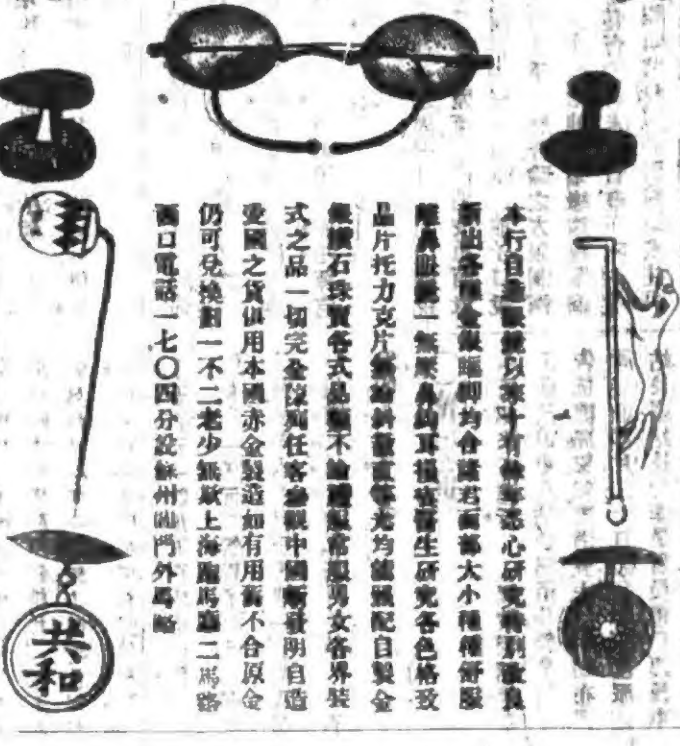 本行自造眼鏡以來十有餘年悉心研究特別改良
新出各種金銀眼脚均合諸君面部大小種種舒服
壓鼻眼鏡一無壓鼻鈎耳損害衛生研究各色格致
晶片托力克片無論斜散直等光均能配自製金
銀鑽石珠寶各式品類不論禮服常服男女各界裝
式之品一切完全陳列任客參觀中國新發明自造
愛國之貨俱用本國赤金製造如有用舊不合原金
仍可兌換劃一不二老少無欺上海跑馬廳二馬路
西口電話一七〇四分設蘇州閶門外馬路
共和